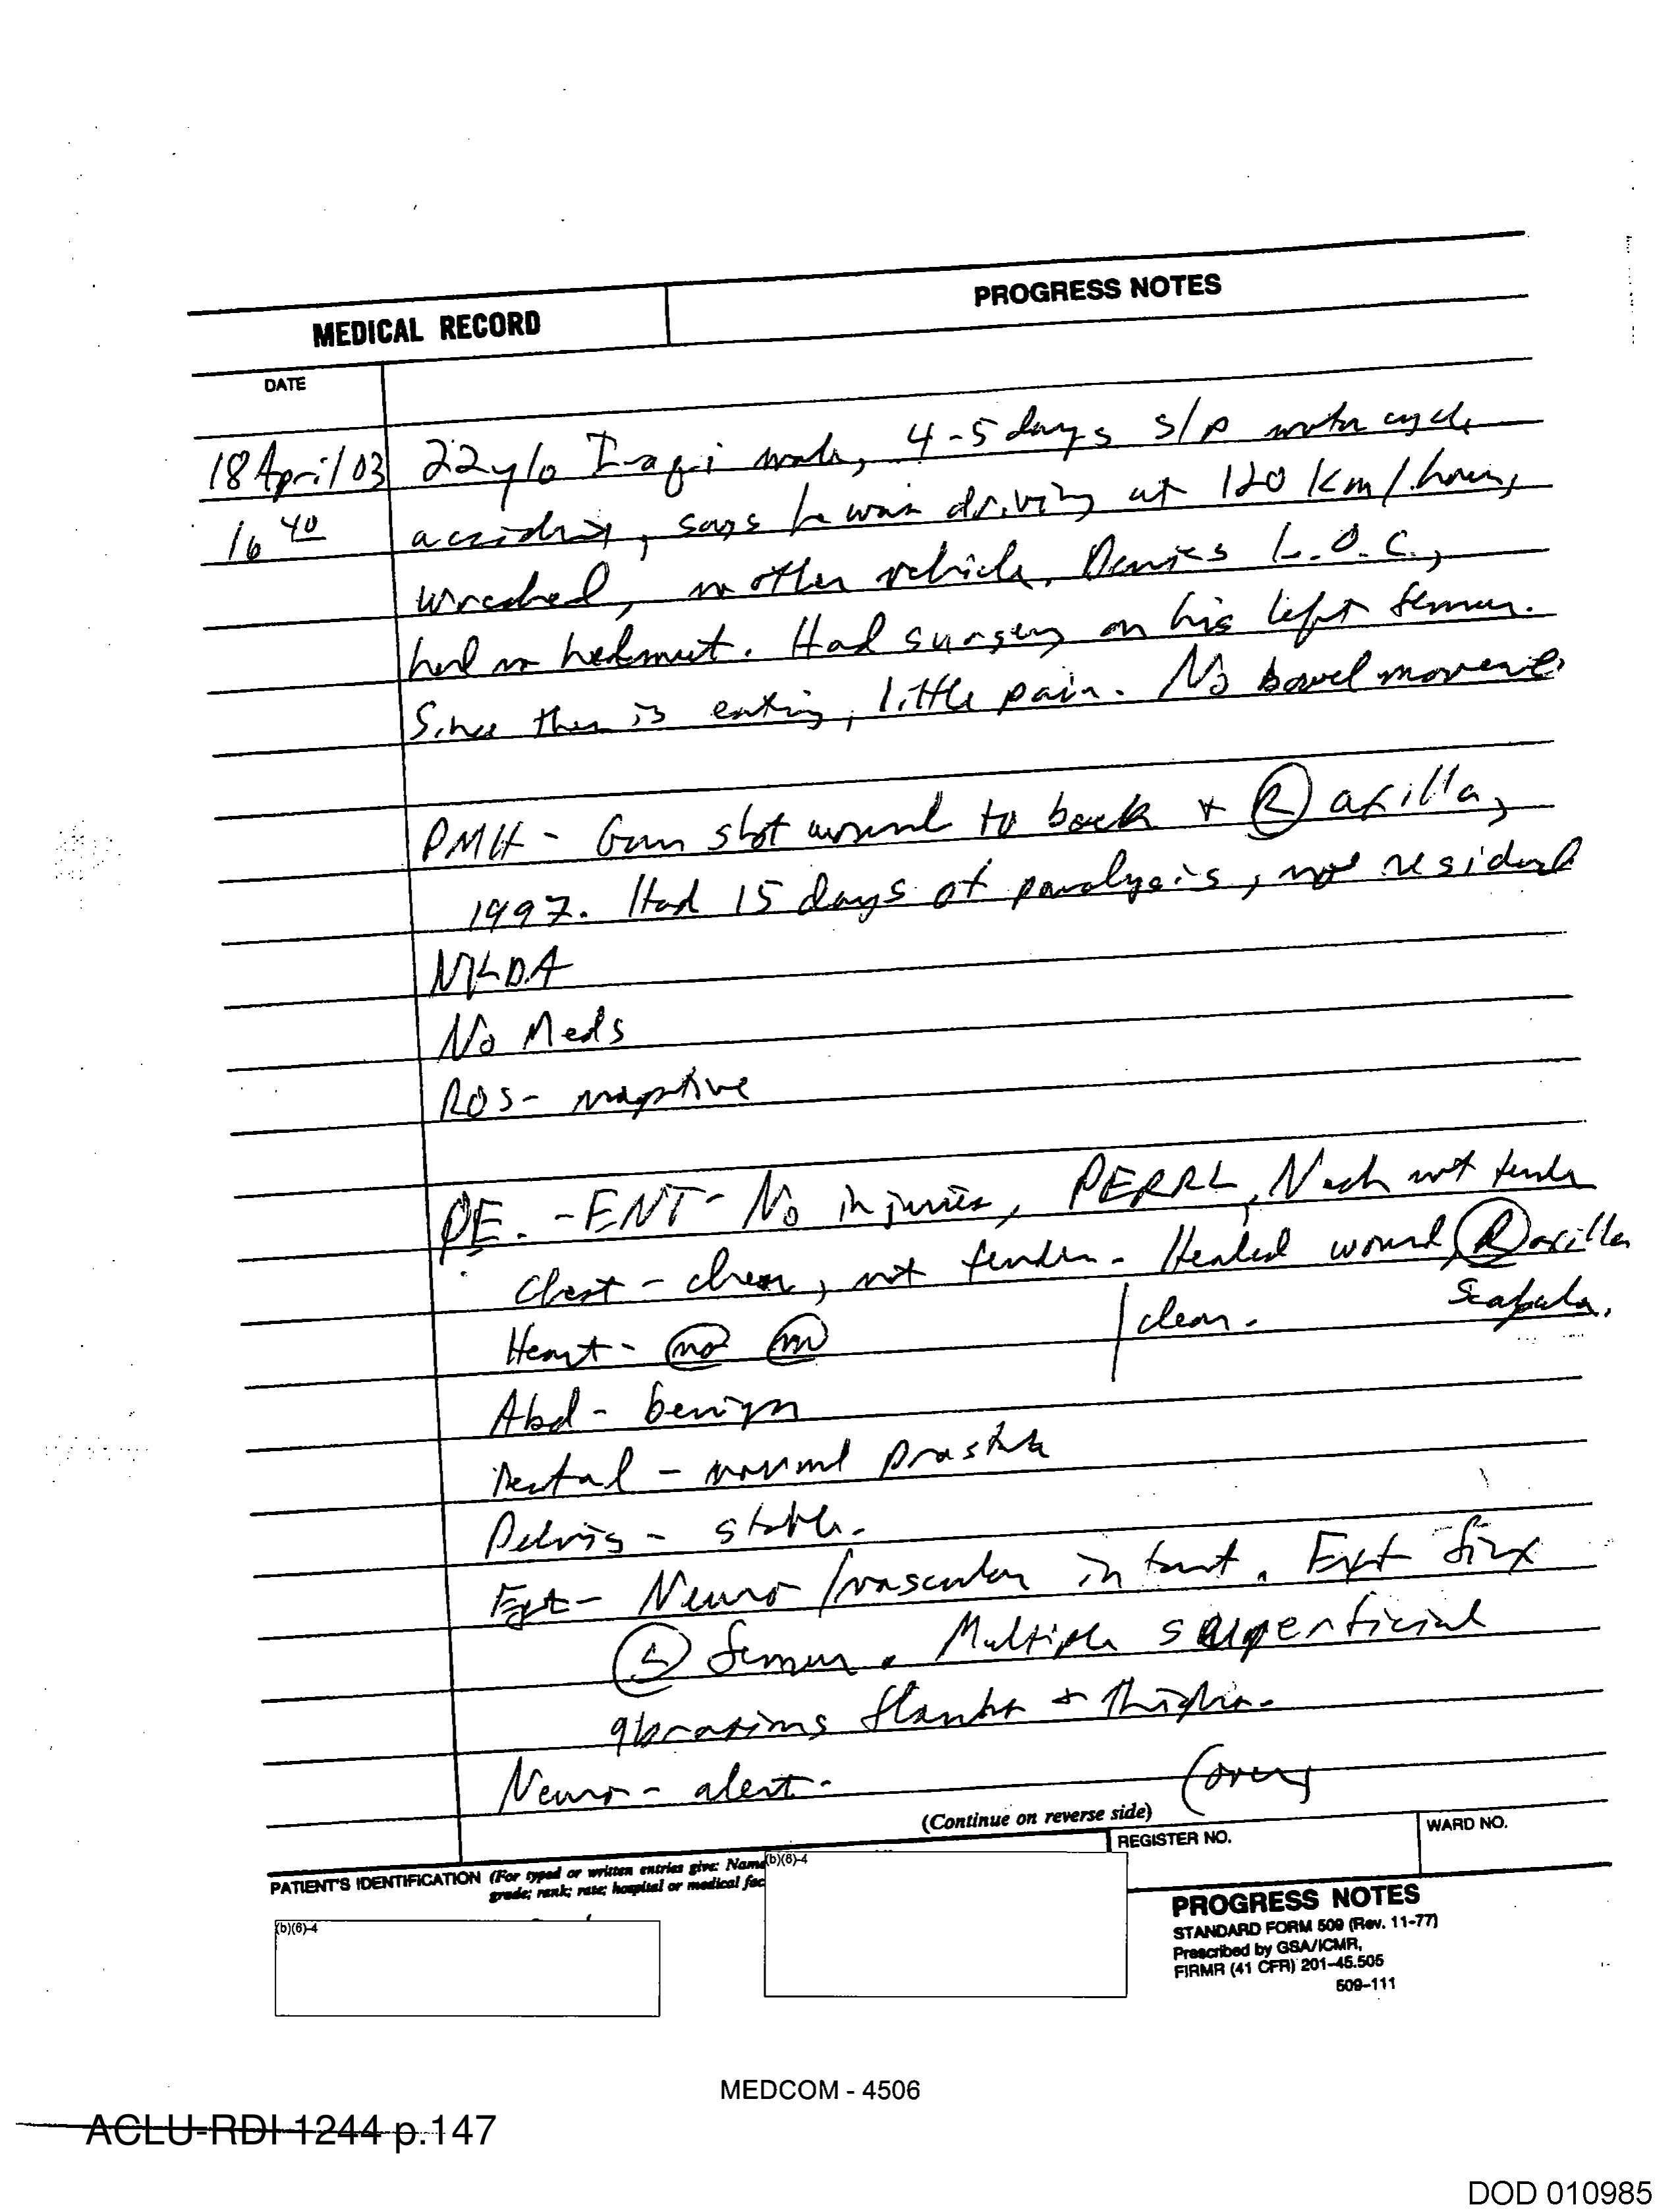 MEDICAL RECORD
PROGRESS NOTES
DATE
18 April 03 22 y/o Iraqi male, 4-5 days s/p motorcycle
16 40 accident, says he was driving at 120 Km/hour,
wrecked, no other vehicle. Denies L.O.C.,
had no helmut. Had surgery on his left femur.
Since then is eating, little pain. No bowel movement
PMH - Gun shot wound to back + (R) axilla,
1997. Had 15 days of paralysis, no residual
NKDA
No Meds
ROS- negative
PE. - ENT - No injuries, PERRL, Neck not tender
Chest - clear, not tender. Healed wound (R) axilla
Scapula.
Heart - no m | clear.
Abd - benign
Rectal - normal prostate
Pelvis - stable.
Ext - Neuro/vascular intact. Ext fix
(L) femur. Multiple superficial
abrasions flanks + thighs.
Neuro - alert. (over)
(Continue on reverse side)
PATIENT'S IDENTIFICATION (For typed or written entries give: Name
grade; rank; rate; hospital or medical fac
REGISTER NO.
WARD NO.
(b)(6)-4
(b)(6)-4
PROGRESS NOTES
STANDARD FORM 509 (Rev. 11-77)
Prescribed by GSA/ICMR,
FIRMR (41 CFR) 201-45.505
509-111
MEDCOM - 4506
ACLU-RDI 1244 p.147
DOD 010985